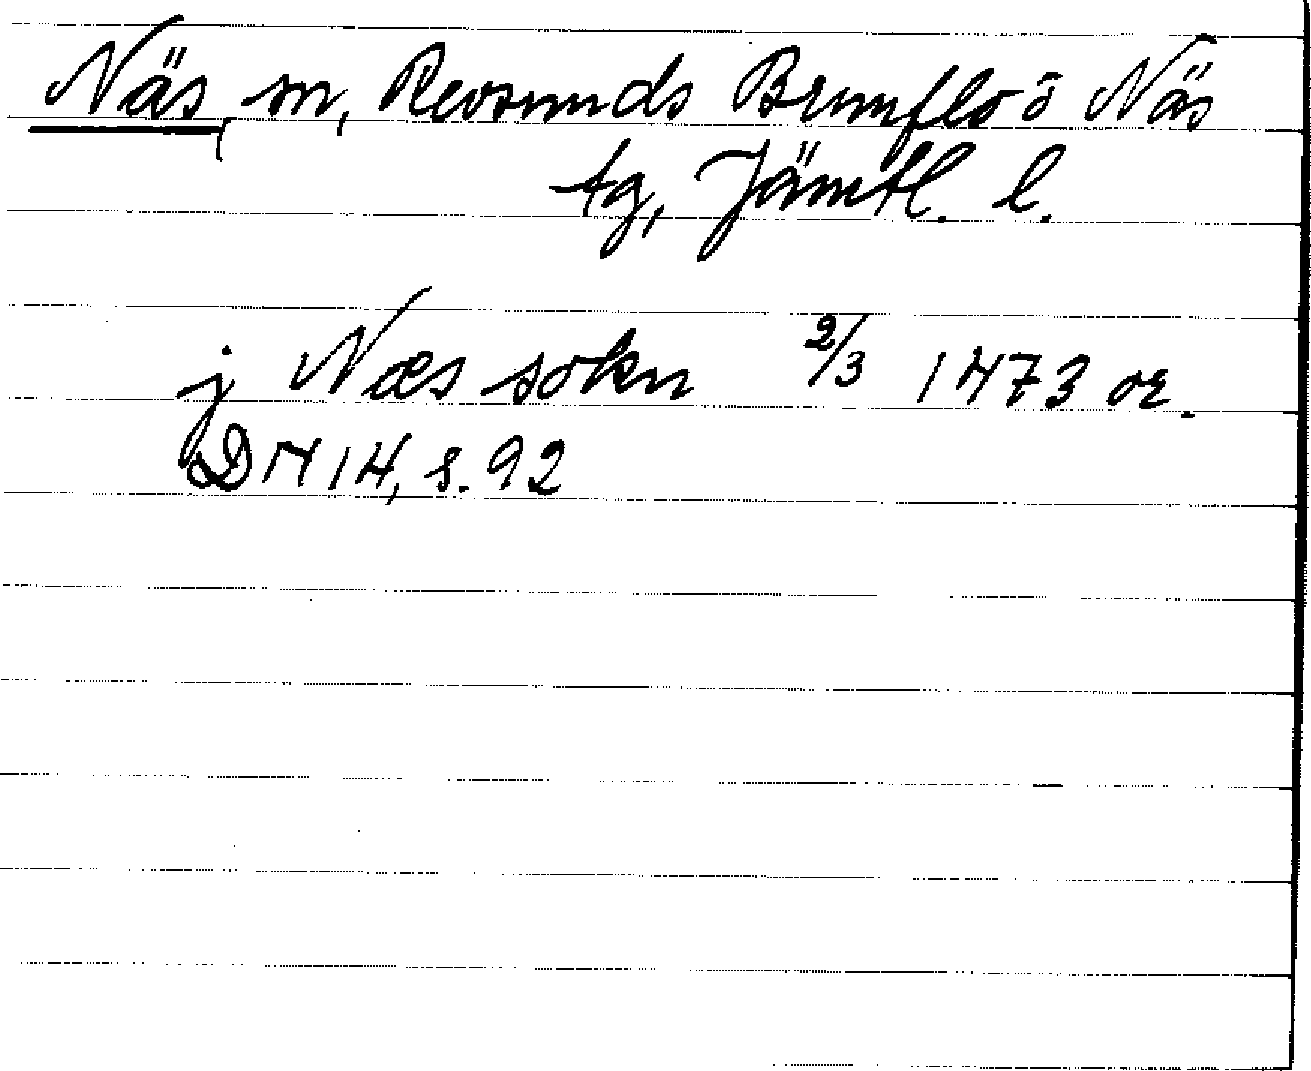 Näs, sn, Revsunds Brunflo o Näs
tg, Jämtl. l.
j Næs sokn 2/3 1473 or.
DN 14, s. 92